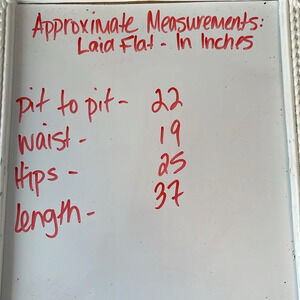 Approximate Measurements:
Laid Flat - In Inches
pit to pit - 22
waist - 19
Hips - 25
Length - 37